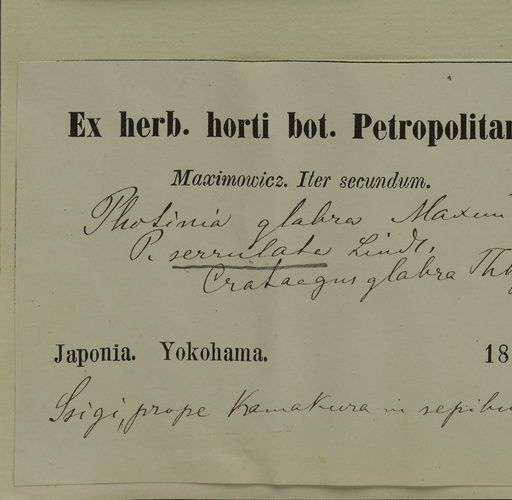 Ex herb. horti bot. Petropolitan
Maximowicz. Iter secundum.
Photinia glabra Maxim
P. serrulata Lindl.
Crataegus glabra Th
Japonia. Yokohama. 18
Ssigi, prope Kamakura in sepibu